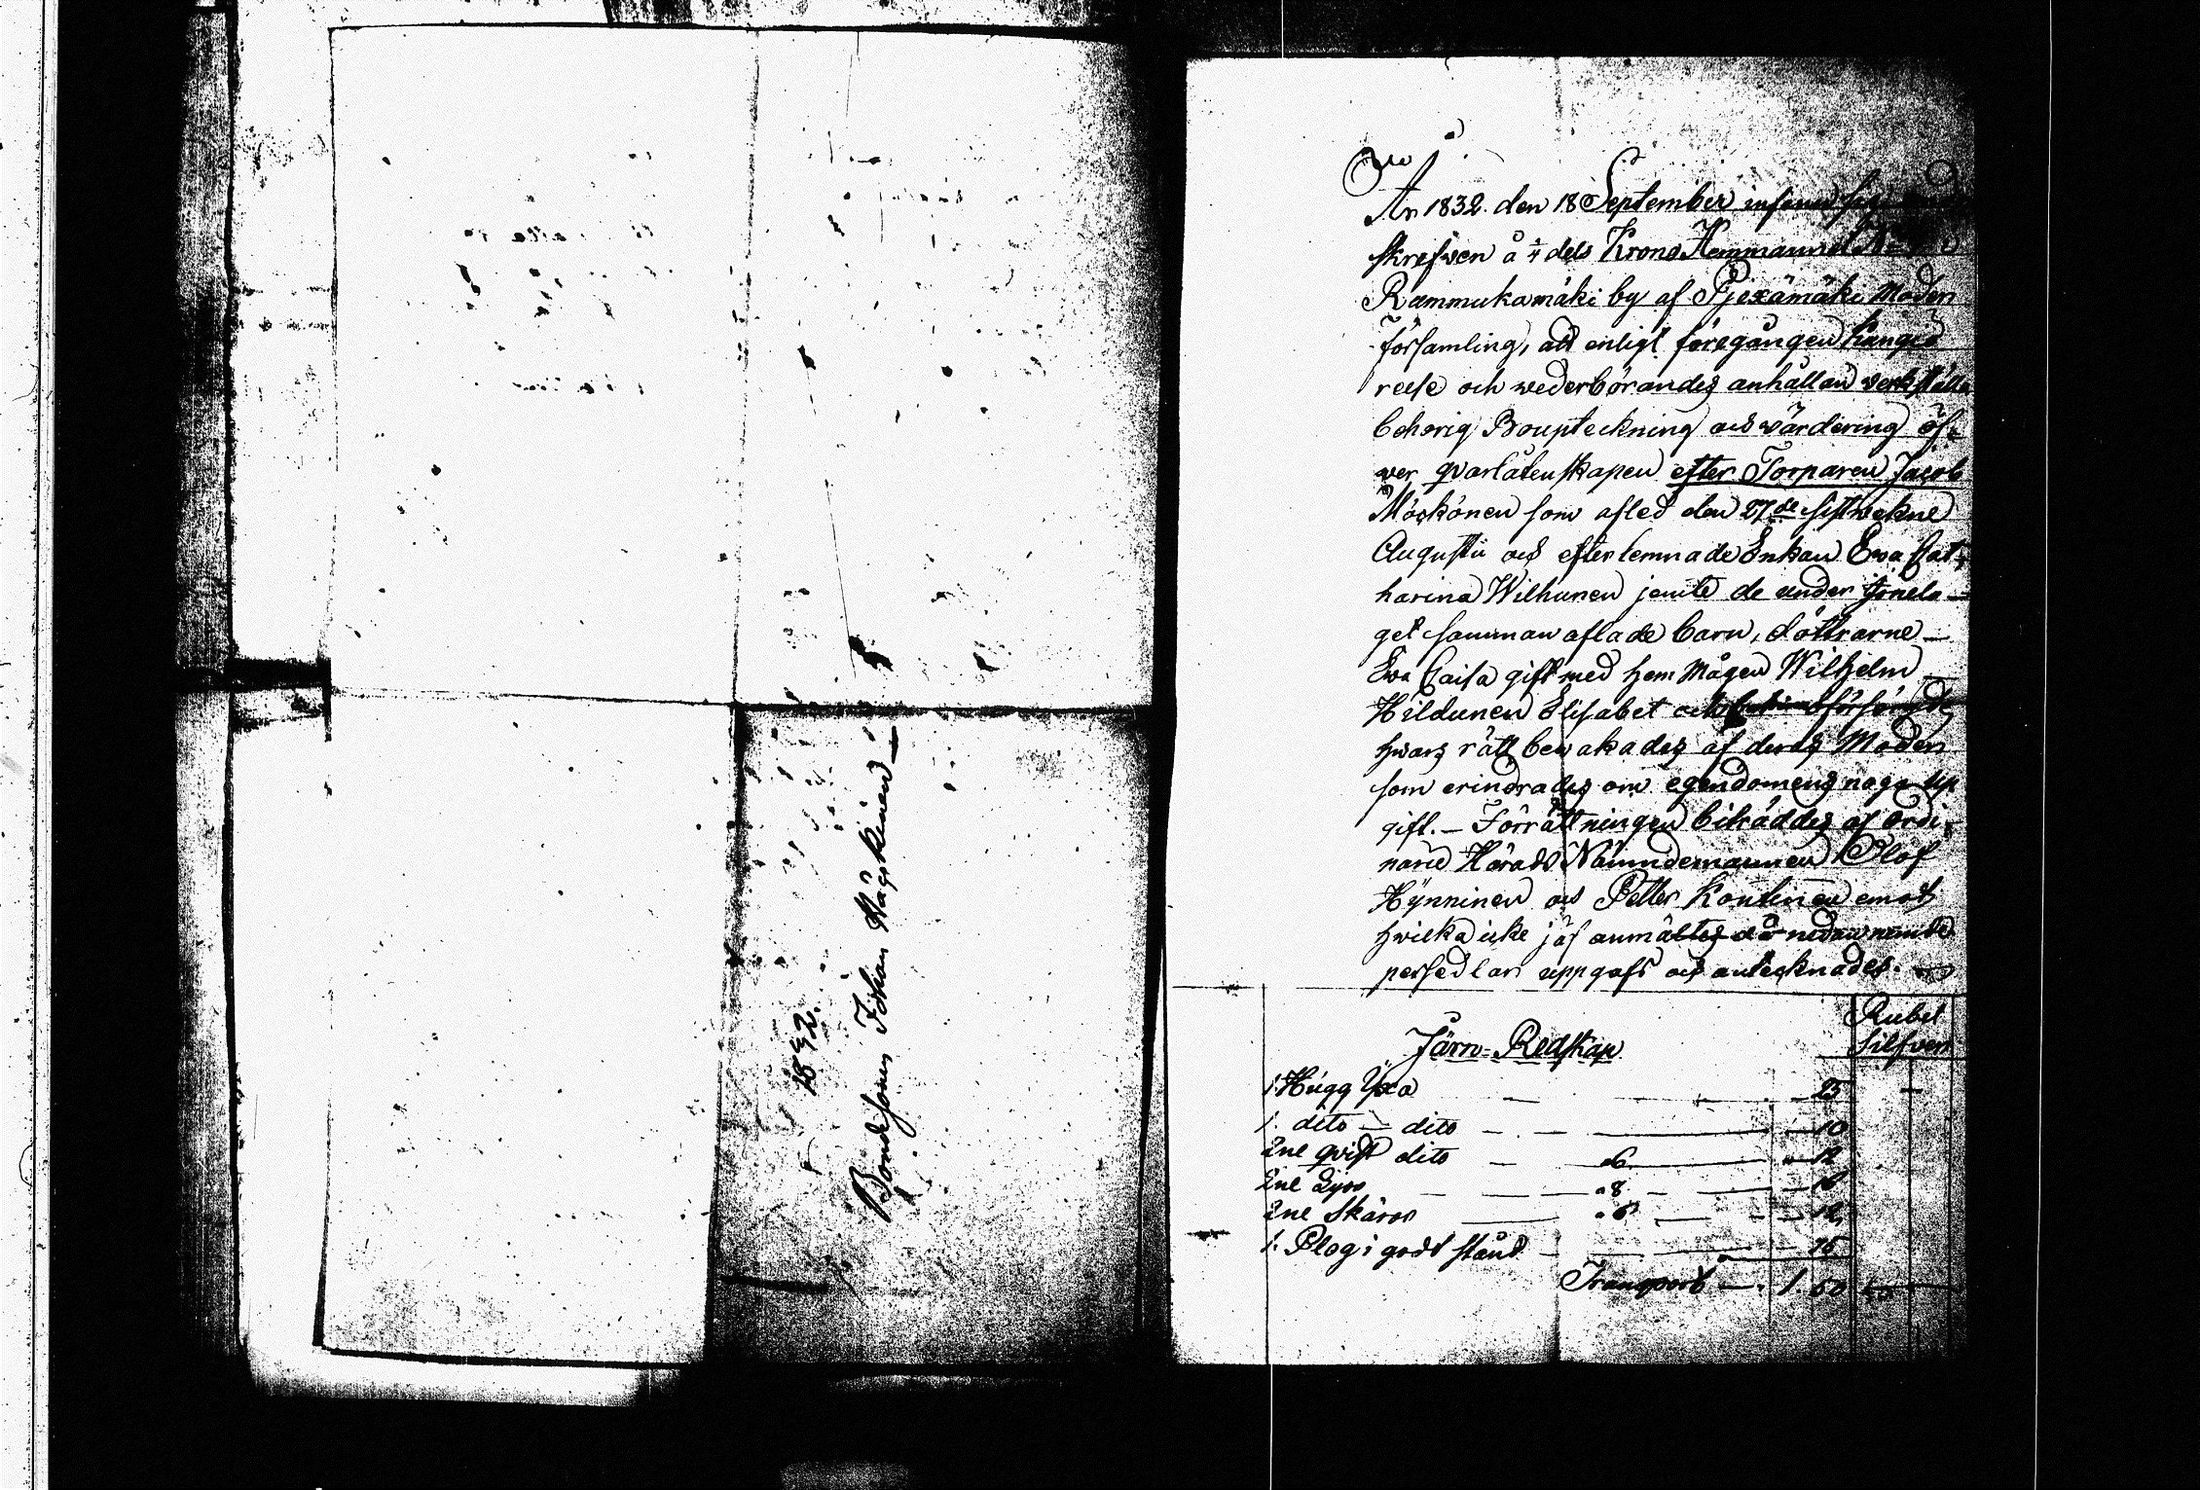 1832.
Bondesonen Johan Häyrkinen
År 1832. den 18 September infann sig
skrefwen å ¼ dels Krono Hemmanet
Rammukamäki by af Pjexämäki Moder
församling, att enligt föregången kungö
relse och wederbörandes anhållan verkställa
behörig Bouptekning och wärdering öf-
wer qvarlåtenskapen efter Torparen Jacob
Möskönen som afled den 27de sistwekne
Augusti och efterlemnade Enkan Ewa Cat-
harina Wilhunen jemte de under förela
get samman aflade barn, döttrarne
Ewa Caisa gift med hem Mågen Wilhelm
Hildunen Elisabet och
hwars rätt bewakades af deras Moder
som erindrades om egendomens noga up
gift. Förrättningen biträddes af ordi-
narie Härads Nämndemannen Olof
Hynninen och Petter Kontinen emot
hwilka icke jäf anmältes då nedannemde
persedlar uppgafs och antecknades.
Rubel
Silfwer
Järn-Redskap
1. Hugg Yxa 25
1. dito dito 10
2ne qvist dito 6 12
2ne Lijor 8 16
2ne Skäror 6 12
1. Plog i godt stånd 75
Transport 1. 50